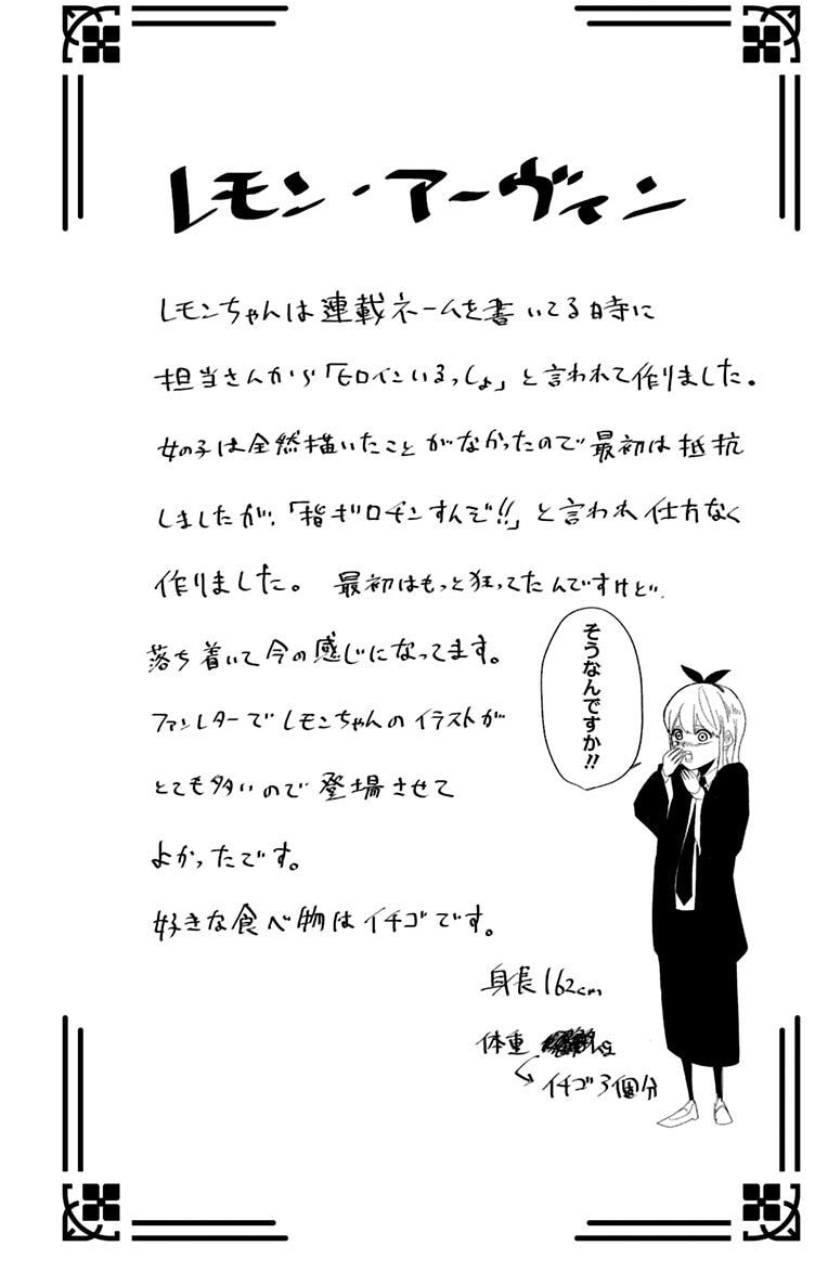 レモン・アーヴィン
レモンちゃんは連載ネームを書いてる時に
担当さんから「ヒロインいるっしょ」と言われて作りました。
女の子は全然描いたことがなかったので最初は抵抗
しましたが、「指ギロチンすんぞ!!」と言われ仕方なく
作りました。 最初はもっと狂ってたんですけど、
落ち着いて今の感じになってます。
そうなんですか!!
ファンレターでレモンちゃんのイラストが
とても多いので登場させて
よかったです。
好きな食べ物はイチゴです。
身長162cm
体重
イチゴ3個分